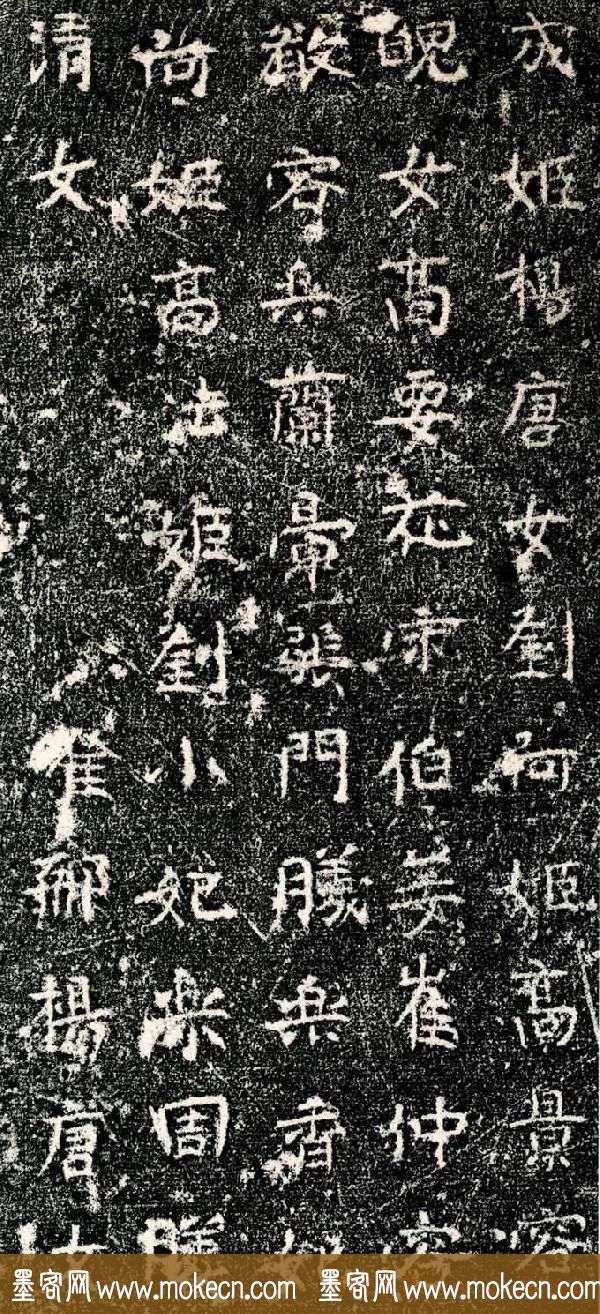 成姬楊唐女劉何姬高景容
醜女高要花宗伯姜崔仲容
敬容興蘭暈張門勝樂香
尚姬高法姬劉小妃樂周勝
清女崔那楊唐女
墨客网 www.mokecn.com 墨客网 www.mokecn.com